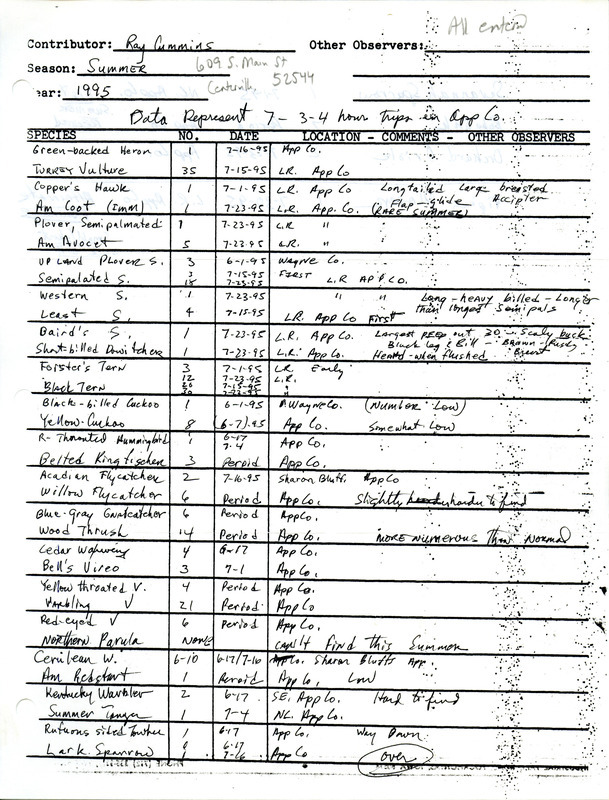 All entered
Contributor: Ray Cummins Other Observers:
609 S. Main St
Season: Summer
Centerville 52544
ear: 1995
Data Represent 7 - 3-4 hour trips in App Co.
SPECIES NO. DATE LOCATION - COMMENTS - OTHER OBSERVERS
Green-backed Heron 1 7-16-95 App Co.
Turkey Vulture 35 7-15-95 L.R. App Co
Copper's Hawk 1 7-1-95 L.R. App Co Longtailed Large breasted
Flap-glide Accipter
Am Coot (Imm) 1 7-23-95 L.R. App. Co. (RARE SUMMER)
Plover, Semipalmated 1 7-23-95 L.R "
Am Avocet 5 7-23-95 L.R. "
Upland Plover S. 3 6-1-95 Wayne Co.
Semipalated S. 3 7-15-95 FIRST L.R App Co.
18 7-23-95
Western S. 1 7-23-95 " " Long-heavy billed-Longer
than longest Semipals
Least S. 4 7-15-95 L.R. App Co First
Baird's S. 1 7-23-95 L.R. App Co Largest PEEP out 20 - Scaly back
Black leg & Bill - Brown - Bushy
Short-billed Dowitchers 1 7-23-95 L.R. App Co. Heard-when flushed Breast
Forster's Tern 3 7-1-95 L.R. Early
12 7-23-95 L.R.
Black Tern 7-15-95 "
7-23-95 "
Black-billed Cuckoo 1 6-1-95 Wayne Co. (Number Low)
Yellow-Cuckoo 8 (6-7).95 App Co. Somewhat Low
R-Thoroated Hummingbird 1 6-17 App Co.
7-4
Belted Kingfischer 3 Peroid App Co.
Acadian Flycatcher 2 7-16-95 Sharon Bluffs App Co
Willow Flycatcher 6 Period App Co. Slightly harder to find
Blue-Gray Gnatcatcher 6 Period App Co.
Wood Thrush 14 Period App Co. MORE NUMEROUS Than NORMAL
Cedar Waxwing 4 6-17 App Co.
Bell's Vireo 3 7-1 App Co.
Yellow throated V. 4 Period App Co.
Warbling V 21 Period App Co
Red-eyed V 6 Period App Co.
Northern Parula None can't find this Summer
Cerulean W. 6-10 6-17/7-16 App Co. Sharon Bluffs App.
Am Redstart 1 Peroid App Co, Low
Kentucky Warbler 2 6-17 SE. App Co. Hard to find
Summer Tanger 1 7-4 NL. App Co.
Rufuous sided Towhee 1 6-17 App Co. Way Down
Lark Sparrow 6-17 App Co
1 7-16
(over)